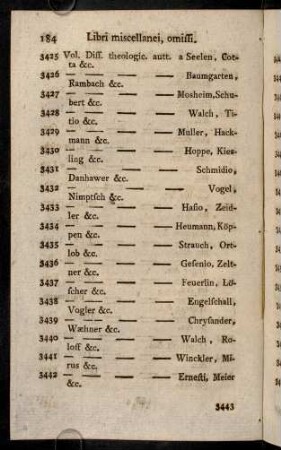 184 Libri miscellanei, omissi.
3425 Vol. Diss. theologic. autt. a Seelen, Cot-
ta &c.
3426 — — — — Baumgarten,
Rambach &c.
3427 — — — — Mosheim, Schu-
bert &c.
3428 — — — — Walch, Ti-
tio &c.
3429 — — — — Muller, Hack-
mann &c.
3430 — — — — Hoppe, Kies-
ling &c.
3431 — — — — Schmidio,
Danhawer &c.
3432 — — — — Vogel,
Nimptsch &c.
3433 — — — — Hasio, Zeid-
ler &c.
3434 — — — — Heumann, Köp-
pen &c.
3435 — — — — Strauch, Ort-
lob &c.
3436 — — — — Gesenio, Zelt-
ner &c.
3437 — — — — Feuerlin, Lö-
scher &c.
3438 — — — — Engelschall,
Vogler &c.
3439 — — — — Chrysander,
Wæhner &c.
3440 — — — — Walch, Ro-
loff &c.
3441 — — — — Winckler, Mi-
rus &c.
3442 — — — — Ernesti, Meier
&c.
3443